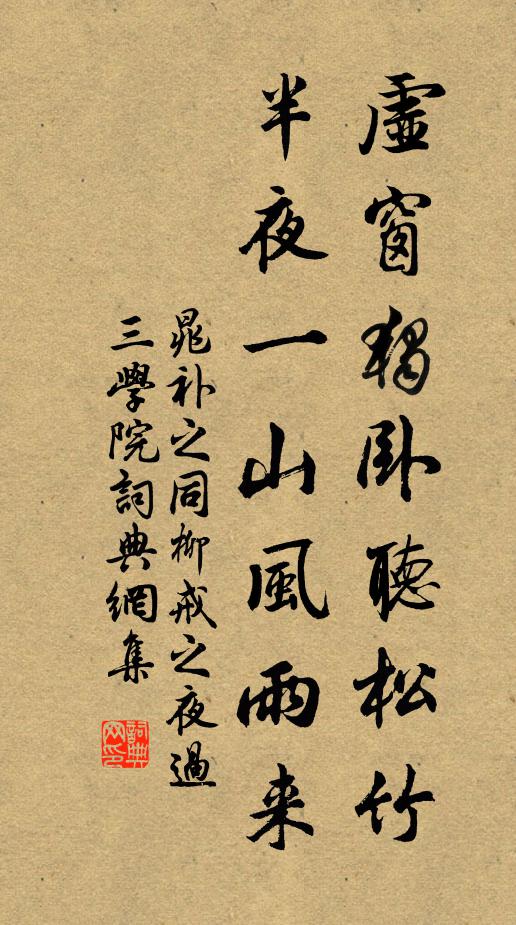 虛窗獨臥聽松竹
半夜一山風雨来
晁补之同柳戒之夜過
三學院詞典網集
詞典
网印